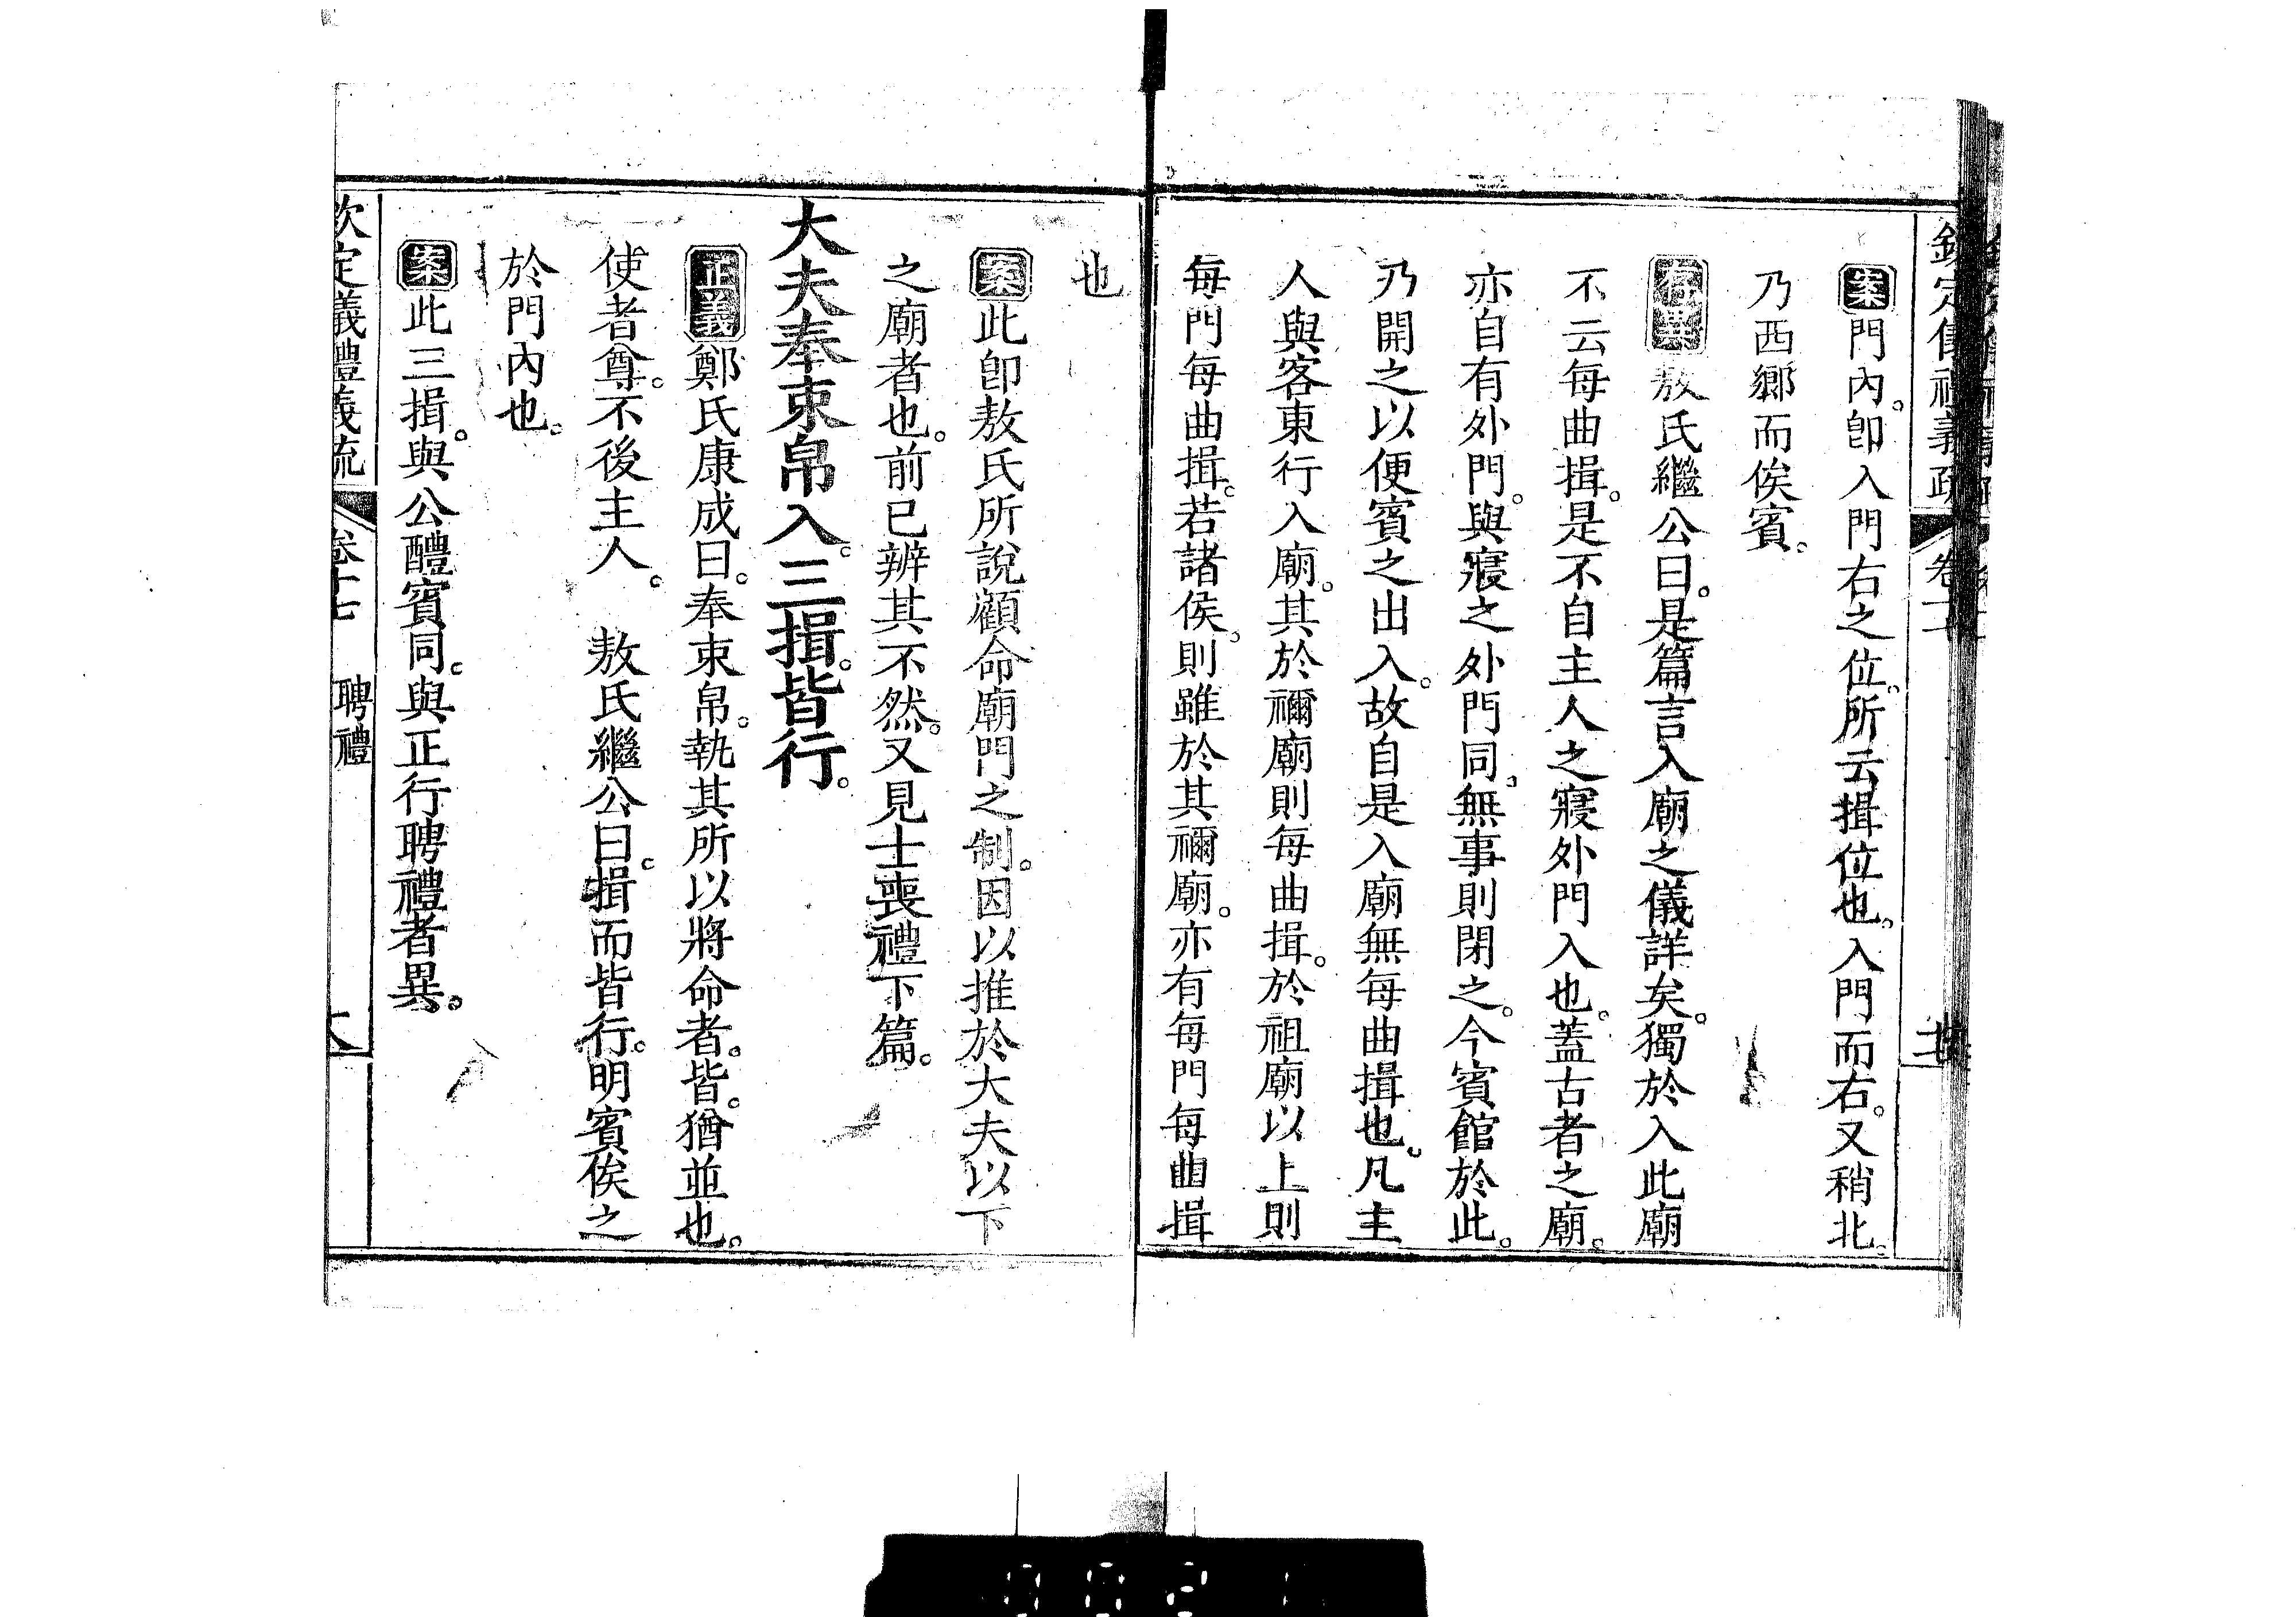 案門內。卽入門右之位。所云揖位也。入門而右。又稍北。
乃西鄉而俟賓。
存異敖氏繼公曰。是篇言入廟之儀詳矣。獨於入此廟
不云每曲揖。是不自主人之寢外門入也。蓋古者之廟。
亦自有外門。與寢之外門同。無事則閉之。今賓館於此。
乃開之以便賓之出入。故自是入廟無每曲揖也。凡主
人與客東行入廟。其於禰廟則每曲揖。於祖廟以上則
每門每曲揖。若諸侯。則雖於其禰廟。亦有每門每曲揖
也
案此卽敖氏所說顧命廟門之制。因以推於大夫以下
之廟者也。前已辨其不然。又見士喪禮下篇。
大夫奉束帛入。三揖。皆行。
正義鄭氏康成曰。奉束帛。執其所以將命者。皆。猶並也。
使者尊。不後主人。 敖氏繼公曰。揖而皆行。明賓俟之
於門內也。
案此三揖。與公醴賓同。與正行聘禮者異。
欽定儀禮義疏 卷十七 聘禮